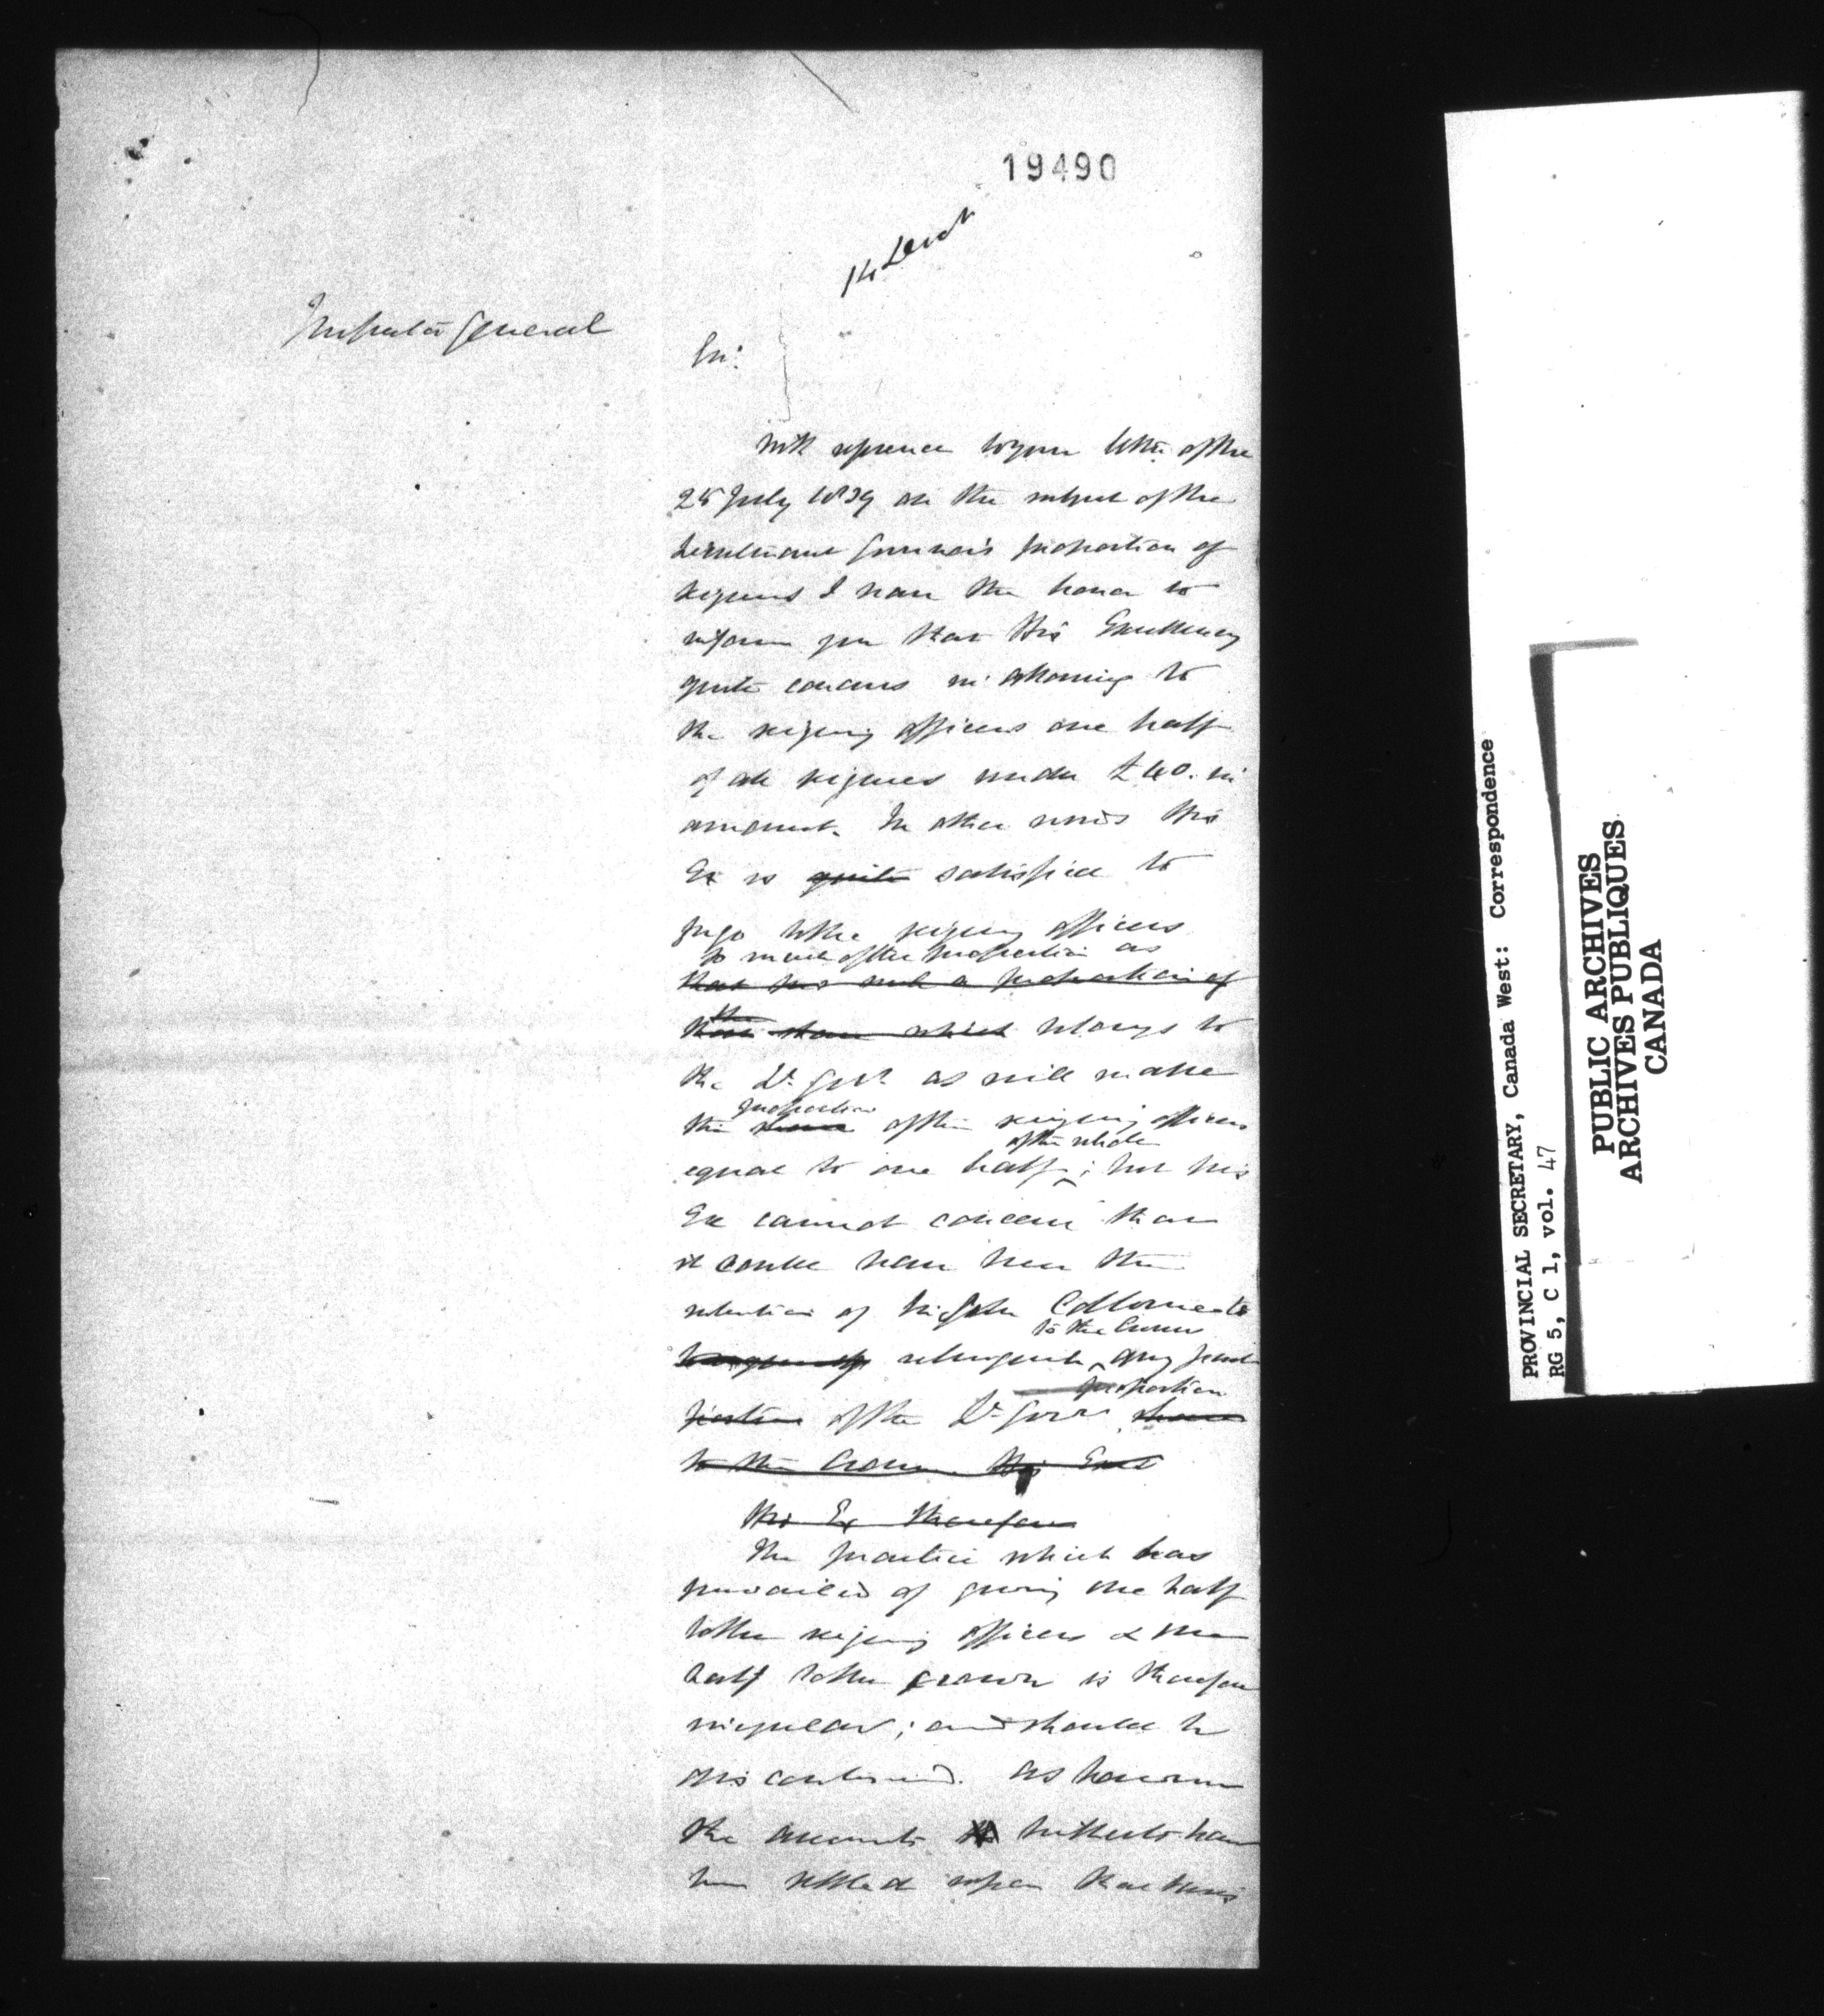 19490
14 Sept
Inspector General
Sir:
With reference to your letter of the
25 July 1839 on the subject of the
Lieutenant Governor's proportion of
seizures I have the honor to
inform you that His Excellency
quite concurs in allowing to
the seizing officers one half
of all seizures under £40. in
amount. In other words His
Ex is quite satisfied to
forgo to the seizing officers
so much of the proportion as
that his such a proportion of
the
that share which belongs to
the Lt. Govr as will make
proportion
the share of the seizing officers
of the whole
equal to one half; but his
Ex cannot conceive that
it could have been the
intention of Sir John Colborne to
to the Crown
relinquish any part
proportion
portion of the Lt Govrs share
to the Crown. His Exc
His Ex therefore
The practice which has
prevailed of giving one half
to the seizing officers & one
half to the crown is therefore
irregular; and should be
discontinued. As however
the accounts hitherto have
been settled upon that
PROVINCIAL SECRETARY, Canada West: Correspondence
RG 5, C 1, vol. 47
PUBLIC ARCHIVES
ARCHIVES PUBLIQUES
CANADA